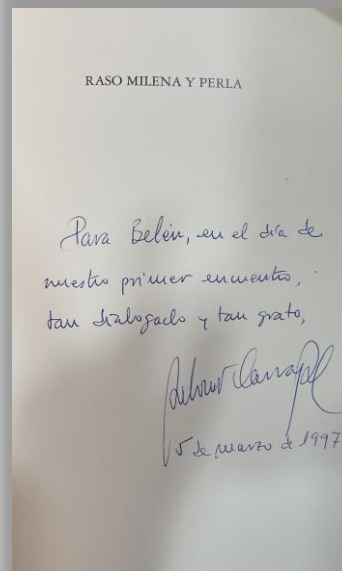 RASO MILENA Y PERLA
Para Belén, en el día de
nuestro primer encuentro,
tan dialogado y tan grato,
5 de marzo de 1997